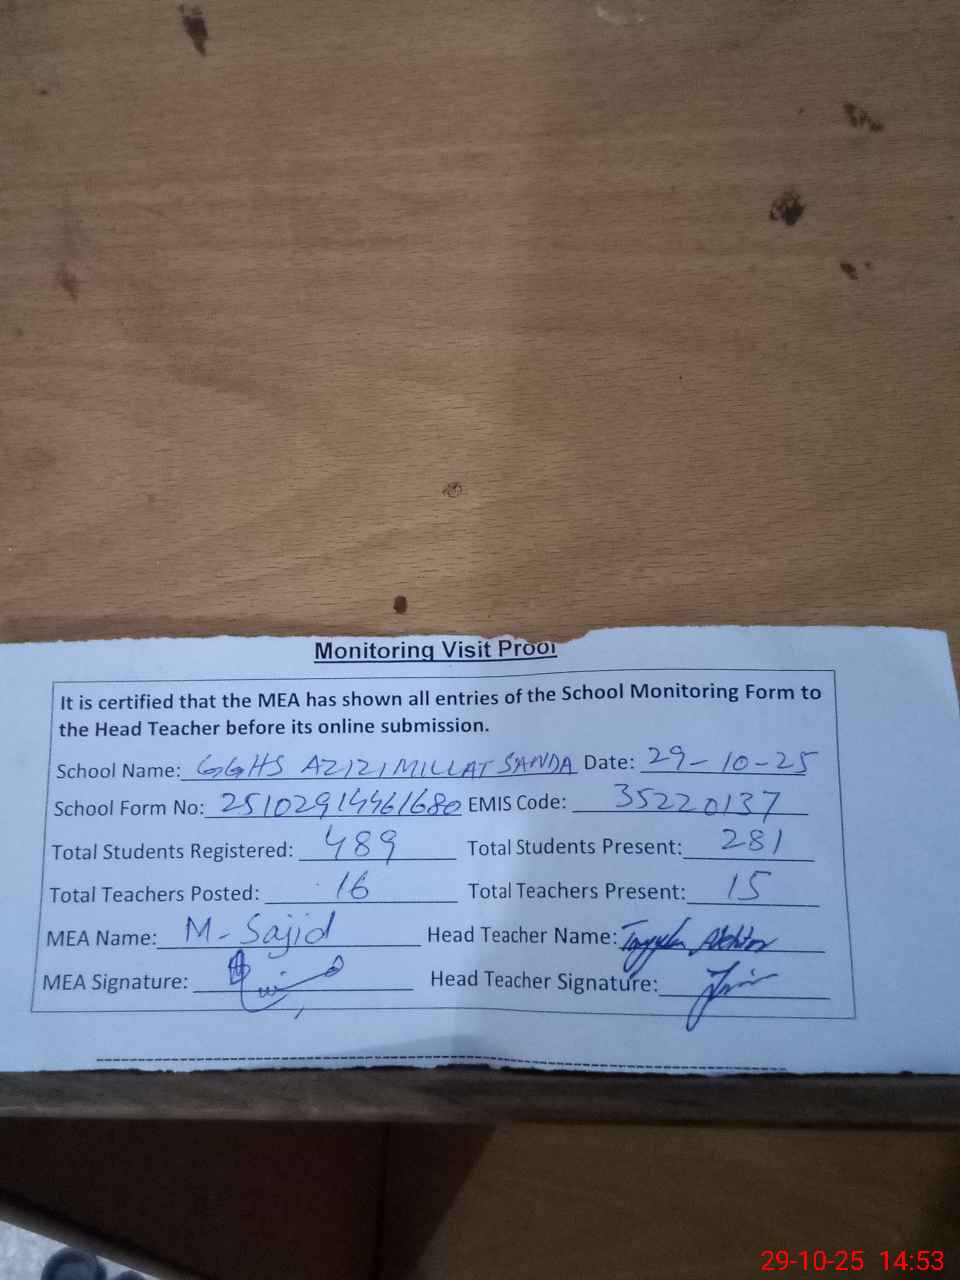 Monitoring Visit Proof
It is certified that the MEA has shown all entries of the School Monitoring Form to
the Head Teacher before its online submission.
School Name: GGHS AZIZI MILLAT SANDA Date: 29-10-25
School Form No: 25102914461680 EMIS Code: 35220137
Total Students Registered: 489 Total Students Present: 281
Total Teachers Posted: 16 Total Teachers Present: 15
MEA Name: M-Sajid Head Teacher Name:
MEA Signature: Head Teacher Signature:
29-10-25 14:53